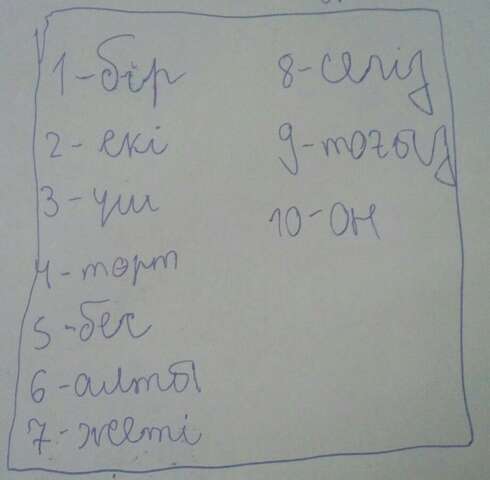 1-бір
2-екі
3-үш
4-төрт
5-бес
6-алты
7-жеті
8-сегіз
9-тоғыз
10-он